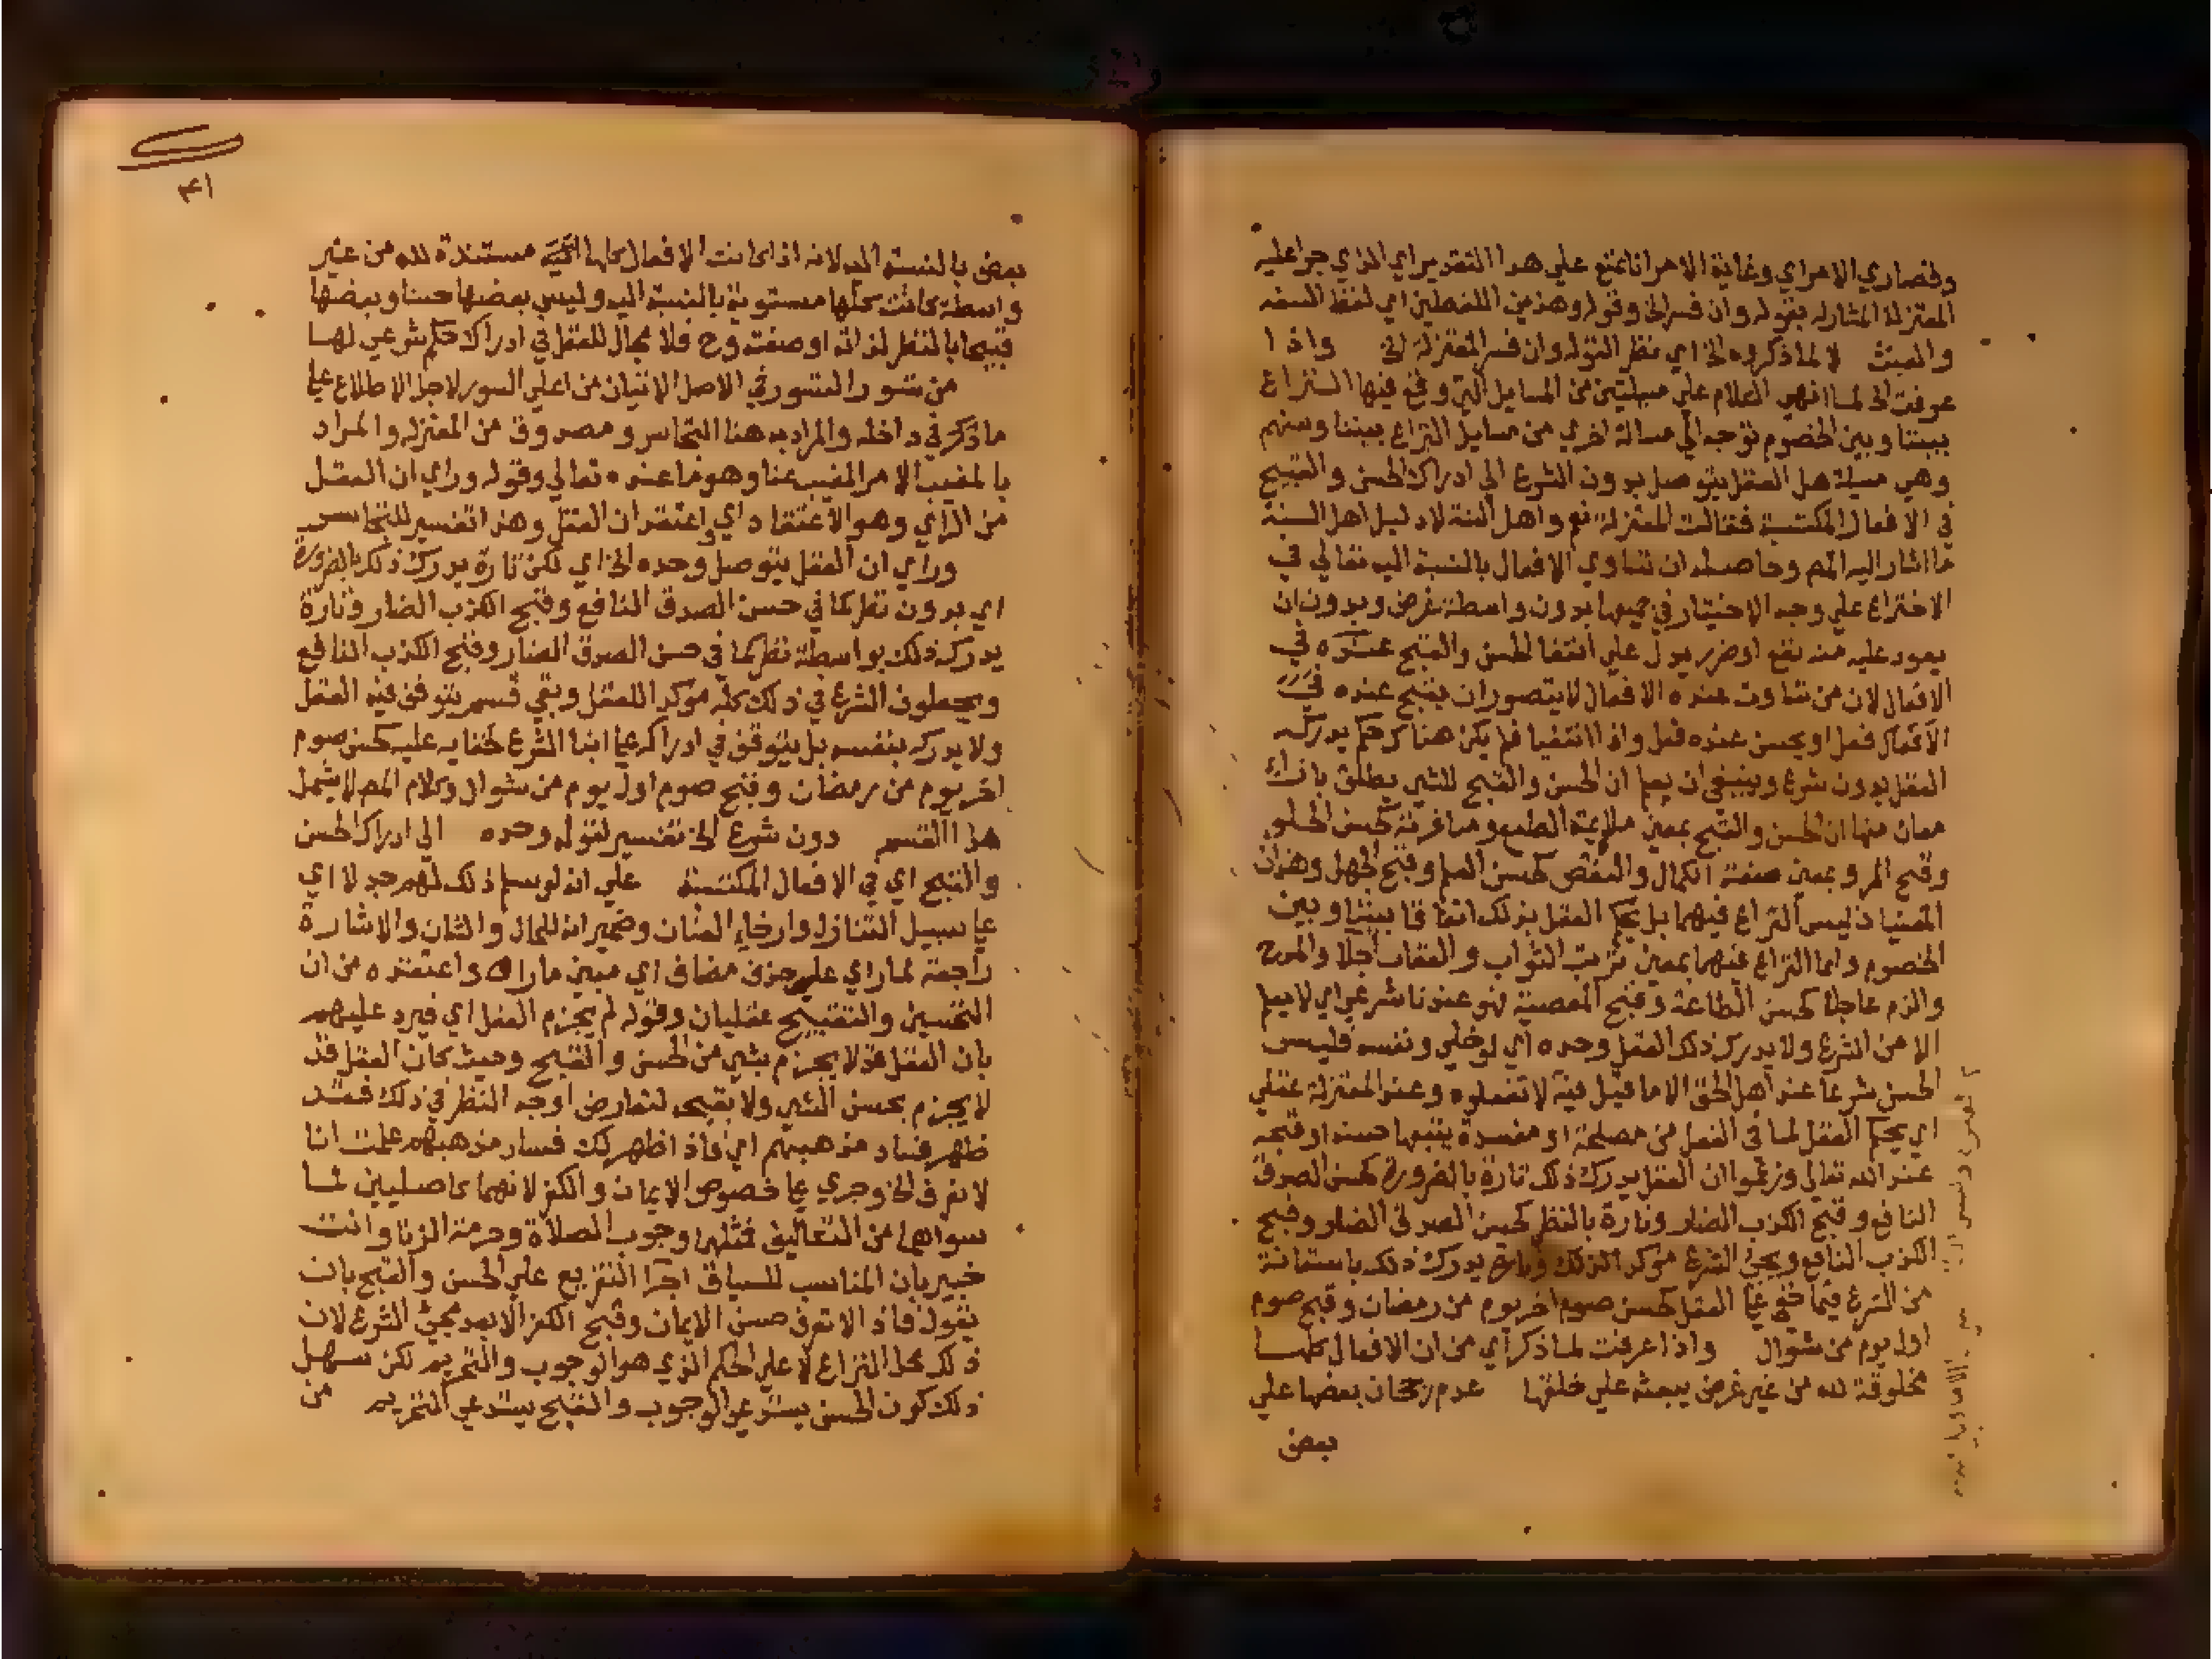 وقصاري الامر اي وغاية الامر انا نمنع علي هذا التقدير اي الذي جرا عليه
المعتزلة المشار له بقوله وان فسر الخ وقوله وهذين اللفظين اي لفظ السفه
والعبث لا لما ذكروه الخ اي نظر القوله وان فسر المعتزلة الخ واذا
عرفت الخ لما انهي الكلام علي مسيلتين من المسايل التي وقع فيها النزاع
بيننا وبين الخصوم توجه الي مسالة اخري من مسايل النزاع بيننا وبينهم
وهي مسيلة هل العقل يتوصل بدون الشرع الي ادراك الحسن والقبيح
في الافعال المكتسبة فقالت المعتزلة نعم واهل السنة لا دليل اهل السنة
ما اشار اليه المص وحاصله ان تساوي الافعال بالنسبة اليه تعالي في
الاختراع علي وجه الاختيار في جميعها بدون واسطة غرض وبدون ان
يعود عليه منه نفع او ضرر يدل علي انتفا الحسن والقبح عنده في
الافعال لان من تساوت عنده الافعال لا يتصور ان يقبح عنده في
الافعال فعل او يحسن عنده فعل واذا انتفيا فلم يكن هناك حكم يدركه
العقل بدون شرع وينبغي ان يعلم ان الحسن والقبح للشي يطلق بازاء
معان منها ان الحسن والقبح بمعني ملايمة الطبع ومنافرته كحسن الحلو
وقبح المر وبمعني صفة الكمال والنقص كحسن العلم وقبح الجهل وهذان
المعنيان ليس النزاع فيهما بل يحكم العقل بذلك اتفاقا بيننا وبين
الخصوم وانما النزاع فيهما بمعني ترتب الثواب والعقاب اجلا والمدح
والذم عاجلا كحسن الطاعة وقبح المعصية فهو عندنا شرعي اي لا يعلم
الا من الشرع ولا يدرك ذلك العقل وحده اي لو خلي ونفسه فليس
الحسن شرعا عند اهل الحق الا ما قيل فيه لا تفعلوه وعند المعتزلة عقلي
اي يحكم العقل لما في الفعل من مصلحة او مفسدة يتبعها حسنه او قبحه
عند الله تعالي وزعموا ان العقل يدرك ذلك تارة بالضرورة كحسن الصدق
النافع وقبح الكذب الضار وتارة بالنظر كحسن الصدق الضار وقبح
الكذب النافع ويجئ الشرع موكدا لذلك وتارة يدرك ذلك باستعانة
من الشرع فيما خفي علي العقل كحسن صوم اخر يوم من رمضان وقبح صوم
اول يوم من شوال واذا عرفت لما ذكر اي من ان الافعال كلها
مخلوقة لله من غير غرض يبعثه علي خلقها عدم رجحان بعضها علي
بعض
٤١
بعض بالنسبة اليه لانه اذا كانت الافعال كلها مستندة لله من غير
واسطة كانت كلها مستوية بالنسبة اليه وليس بعضها حسنا وبعضها
قبيحا بالنظر لذاته او صفته وح فلا مجال للعقل في ادراك حكم شرعي لها
من تسور التسور في الاصل الاتيان من اعلي السور لاجل الاطلاع علي
ما ذكر في داخله والمراد به هنا التجاسر ومصدوق من المعتزلة والمراد
بالمغيب الامر المغيب عنا وهو ما عنده تعالي وقوله وراي ان العقل
من الراي وهو الاعتقاد اي واعتقد ان العقل وهذا تفسير للتجاسر
وراي ان العقل يتوصل وحده الخ اي لكن تارة يدرك ذلك بالضرورة
اي بدون نظر كما في حسن الصدق النافع وقبح الكذب الضار وتارة
يدرك ذلك بواسطة نظر كما في حسن الصدق الضار وقبح الكذب النافع
ويجعلون الشرع في ذلك كله موكدا للعقل وبقي قسم يتوقف فيه العقل
ولا يدركه بنفسه بل يتوقف في ادراكه علي ابنا الشرع لخفايه عليه كحسن صوم
اخر يوم من رمضان وقبح صوم اول يوم من شوال وكلام المص لا يشمل
هذا القسم دون شرع الخ تفسير لقوله وحده الي ادراك الحسن
والقبح اي في الافعال المكتسبة علي انه لو سلم ذلك لهم جدلا اي
علي سبيل التنازل وارخاء العنان وضمير انه للحال والشان والاشارة
راجعة لما راي علي حذف مضاف اي مبني ما راه واعتقده من ان
التحسين والتقبيح عقليان وقوله لم يجزم العقل اي فيرد عليهم
بان العقل قد لا يجزم بشي من الحسن والقبح وحيث كان العقل قد
لا يجزم بحسن الشي ولا بقبحه لتعارض اوجه النظر في ذلك فقد
ظهر فساد مذهبهم اي فاذا ظهر لك فساد مذهبهم علمت انا
لا نعرف الخ وجري علي خصوص الايمان والكفر لانهما كاصليين لما
سواهما من التعاليق فمثلهما وجوب الصلاة وحرمة الزنا وانت
خبير بان المناسب للسياق اجرا التفريع علي الحسن والقبح بان
يقول فاذا لا نعرف حسن الايمان وقبح الكفر الا بعد مجئ الشرع لان
ذلك محل النزاع لا علي الحكم الذي هو الوجوب والتحريم لكن سهل
ذلك كون الحسن يستدعي الوجوب والقبح يستدعي التحريم من